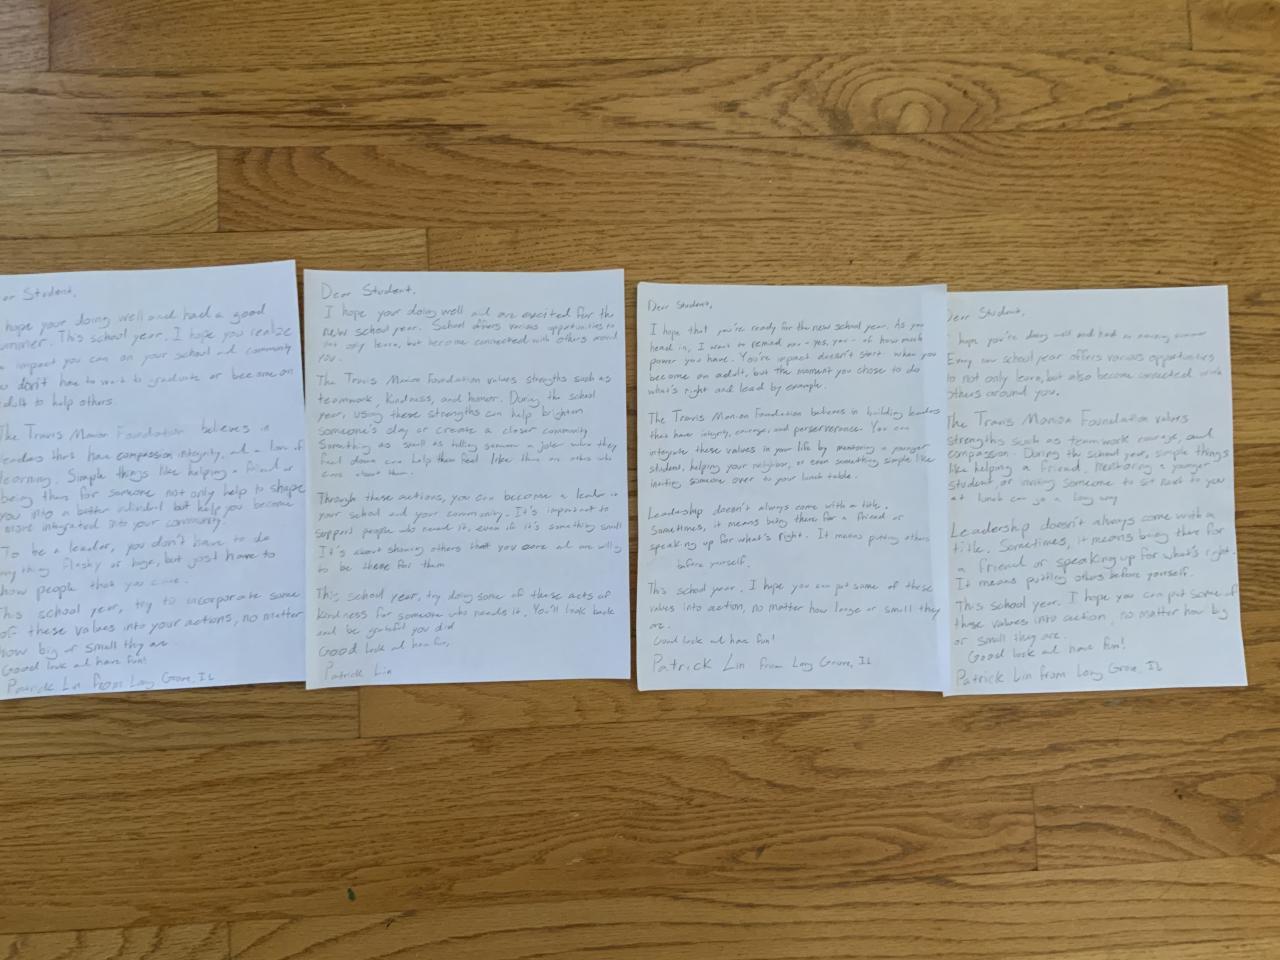 ar Student,
hope your doing well and had a good
ummer. This school year, I hope you realize
impact you can on your school and community
u don't have to wait to graduate or become an
dult to help others.
The Travis Manion Foundation believes in
leaders that have compassion, integrity, and a love of
learning. Simple things like helping a friend or
being there for someone not only help to shape
you into a better individual but help you become
more integrated into your community.
To be a leader, you don't have to do
anything flashy or huge, but just have to
show people that you care.
This school year, try to incorporate some
of these values into your actions, no matter
how big or small they are.
Good luck and have fun!
Patrick Lin from Long Grove, IL
Dear Student,
I hope your doing well and are excited for the
new school year. School offers various opportunities to
not only learn, but become connected with others around
you.
The Travis Manion Foundation values strengths such as
teamwork, kindness, and honor. During the school
year, using these strengths can help brighten
someone's day or create a closer community
Something as small as telling someone a joke when they
feel down can help them feel like there are others who
care about them.
Through these actions, you can become a leader in
your school and your community. It's important to
support people who need it, even if it's something small
It's about showing others that you care and are willing
to be there for them
This school year, try doing some of these acts of
kindness for someone who needs it. You'll look back
and be grateful you did
Good luck and have fun,
Patrick Lin
Dear Student,
I hope that you're ready for the new school year. As you
head in, I want to remind you - yes, you - of how much
power you have. You're impact doesn't start when you
become an adult, but the moment you chose to do
what's right and lead by example.
The Travis Manion Foundation believes in building leaders
that have integrity, courage, and perserverance. You can
integrate these values in your life by mentoring a younger
student, helping your neighbor, or even something simple like
inviting someone over to your lunch table.
Leadership doesn't always come with a title.
Sometimes, it means being there for a friend or
speaking up for what's right. It means putting others
before yourself.
This school year, I hope you can put some of these
values into action, no matter how large or small they
are.
Good luck and have fun!
Patrick Lin from Long Grove, IL
Dear Student,
hope you're doing well and had an amazing summer
Every new school year offers various opportunities
to not only learn, but also become connected with
others around you.
The Travis Manion Foundation values
strengths such as teamwork courage, and
compassion. During the school year, simple things
like helping a friend, mentoring a younger
student, or inviting someone to sit next to you
at lunch can go a long way
Leadership doesn't always come with a
title. Sometimes, it means being there for
a friend or speaking up for what's right.
It means putting others before yourself.
This school year, I hope you can put some of
these values into action, no matter how big
or small they are.
Good luck and have fun!
Patrick Lin from Long Grove, IL